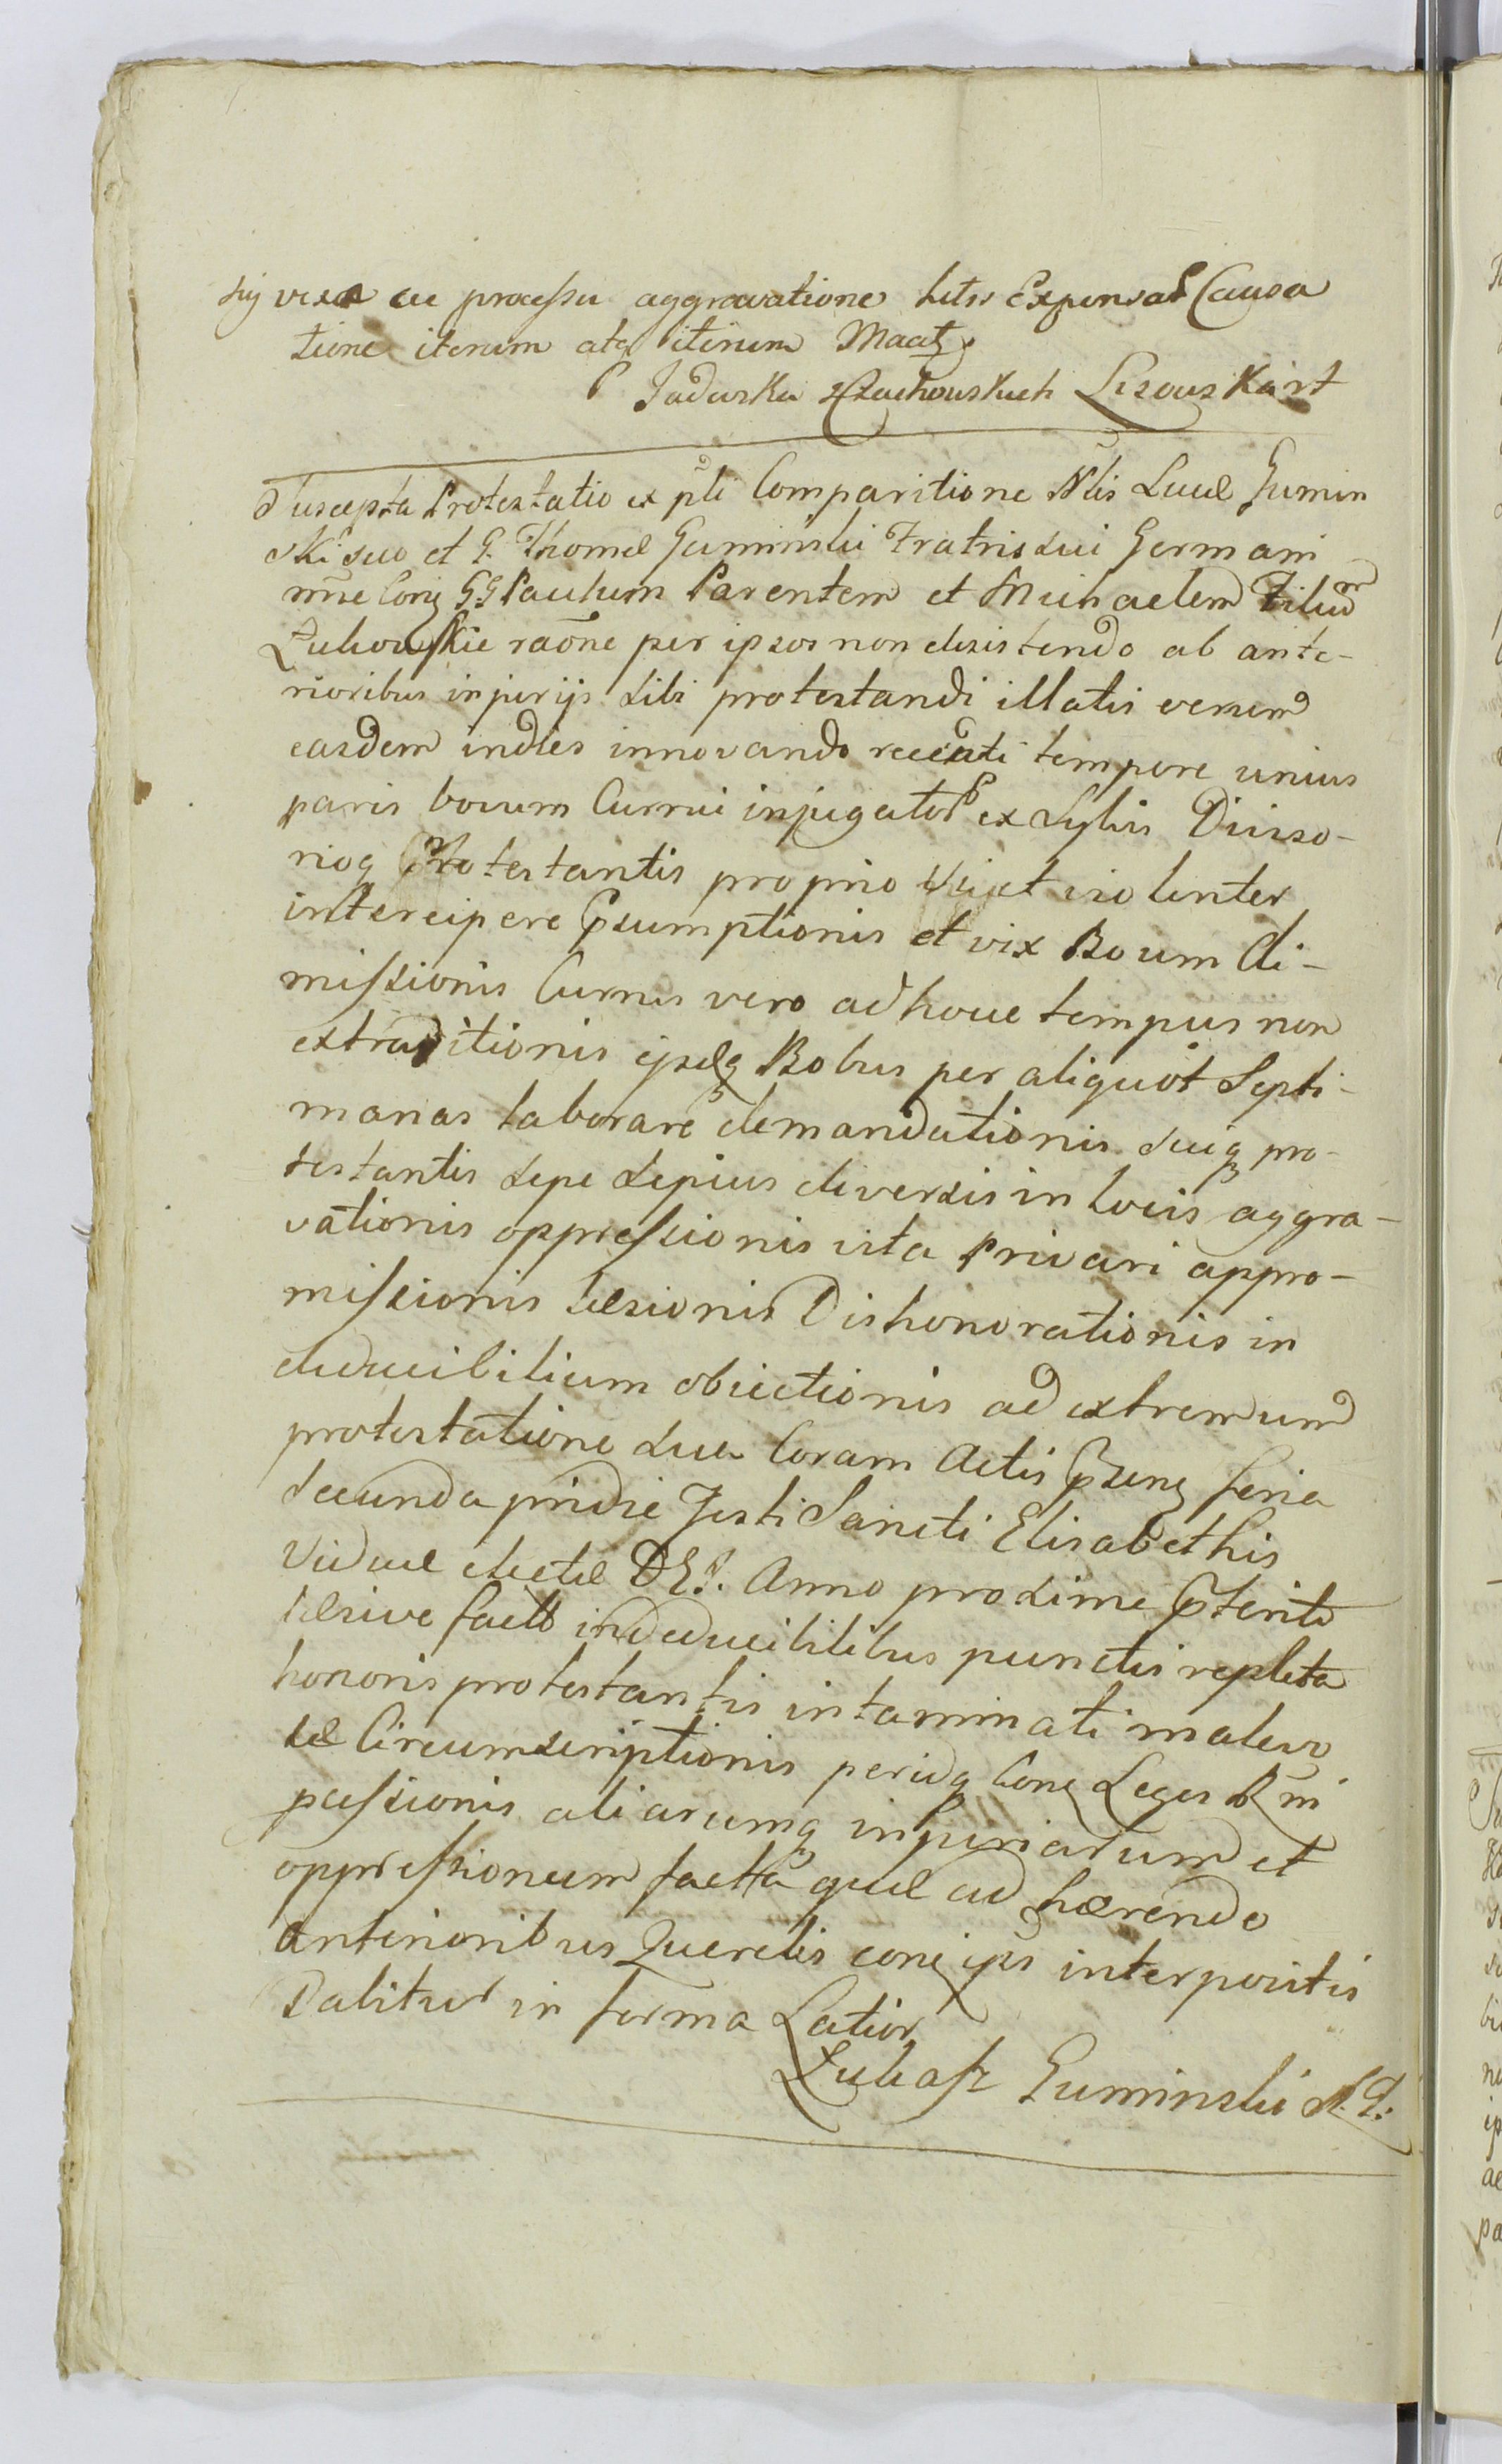 suj vexa ac processu aggravatione litis Expensar Causa
tione iterum atq iterum Maatz
P Jadwska zCzachowskich Lisowska rt
Suscepta Protestatio ex pli Comparitione Nlis Lucæ Gumin
ski suo et G. Thomæ Guminski Fratris sui Germani
nne Conz GG Paulum Parentem et Michaelem Filium
Zukowskie raone per ipsos non desistendo ab ante-
rioribus injurijs sibi protestandi illatis verum
easdem indies innovando recenti tempore unius
paris boum Currui injugator ex sylvis Diviso-
riog Protestantis proprio usui et violenter
intercipere Psumptionis et vix Boum di-
missionis Currus vero ad hocce tempus non
extraditionis ijsdq Bobus per aliquot Septi-
manas laborare demandationis suiq pro-
testantis sepe sepius diversis in locis aggra-
vationis oppressionis vita Privari appro-
missionis læsionis Dishonorationis in
deducibilium obiectionis ad extremum
protestatione sua Coram Actis Psenz feria
secunda pridie Festi Sancti Elisabethis
Viduæ electæ DEJ. Anno proxime Pterito
læsive facto indeducibilibus punctis repleta
honoris protestantis intaminati malevo
læ Circumscriptionis peridq Conz Leges Rni
passionis aliarumq injuriarum et
oppressionum facta quæ ad hærendo
anterioribus Querelis conz ipos interpositis
Dabitur in forma Latiori
Łukasz Guminski N. P.